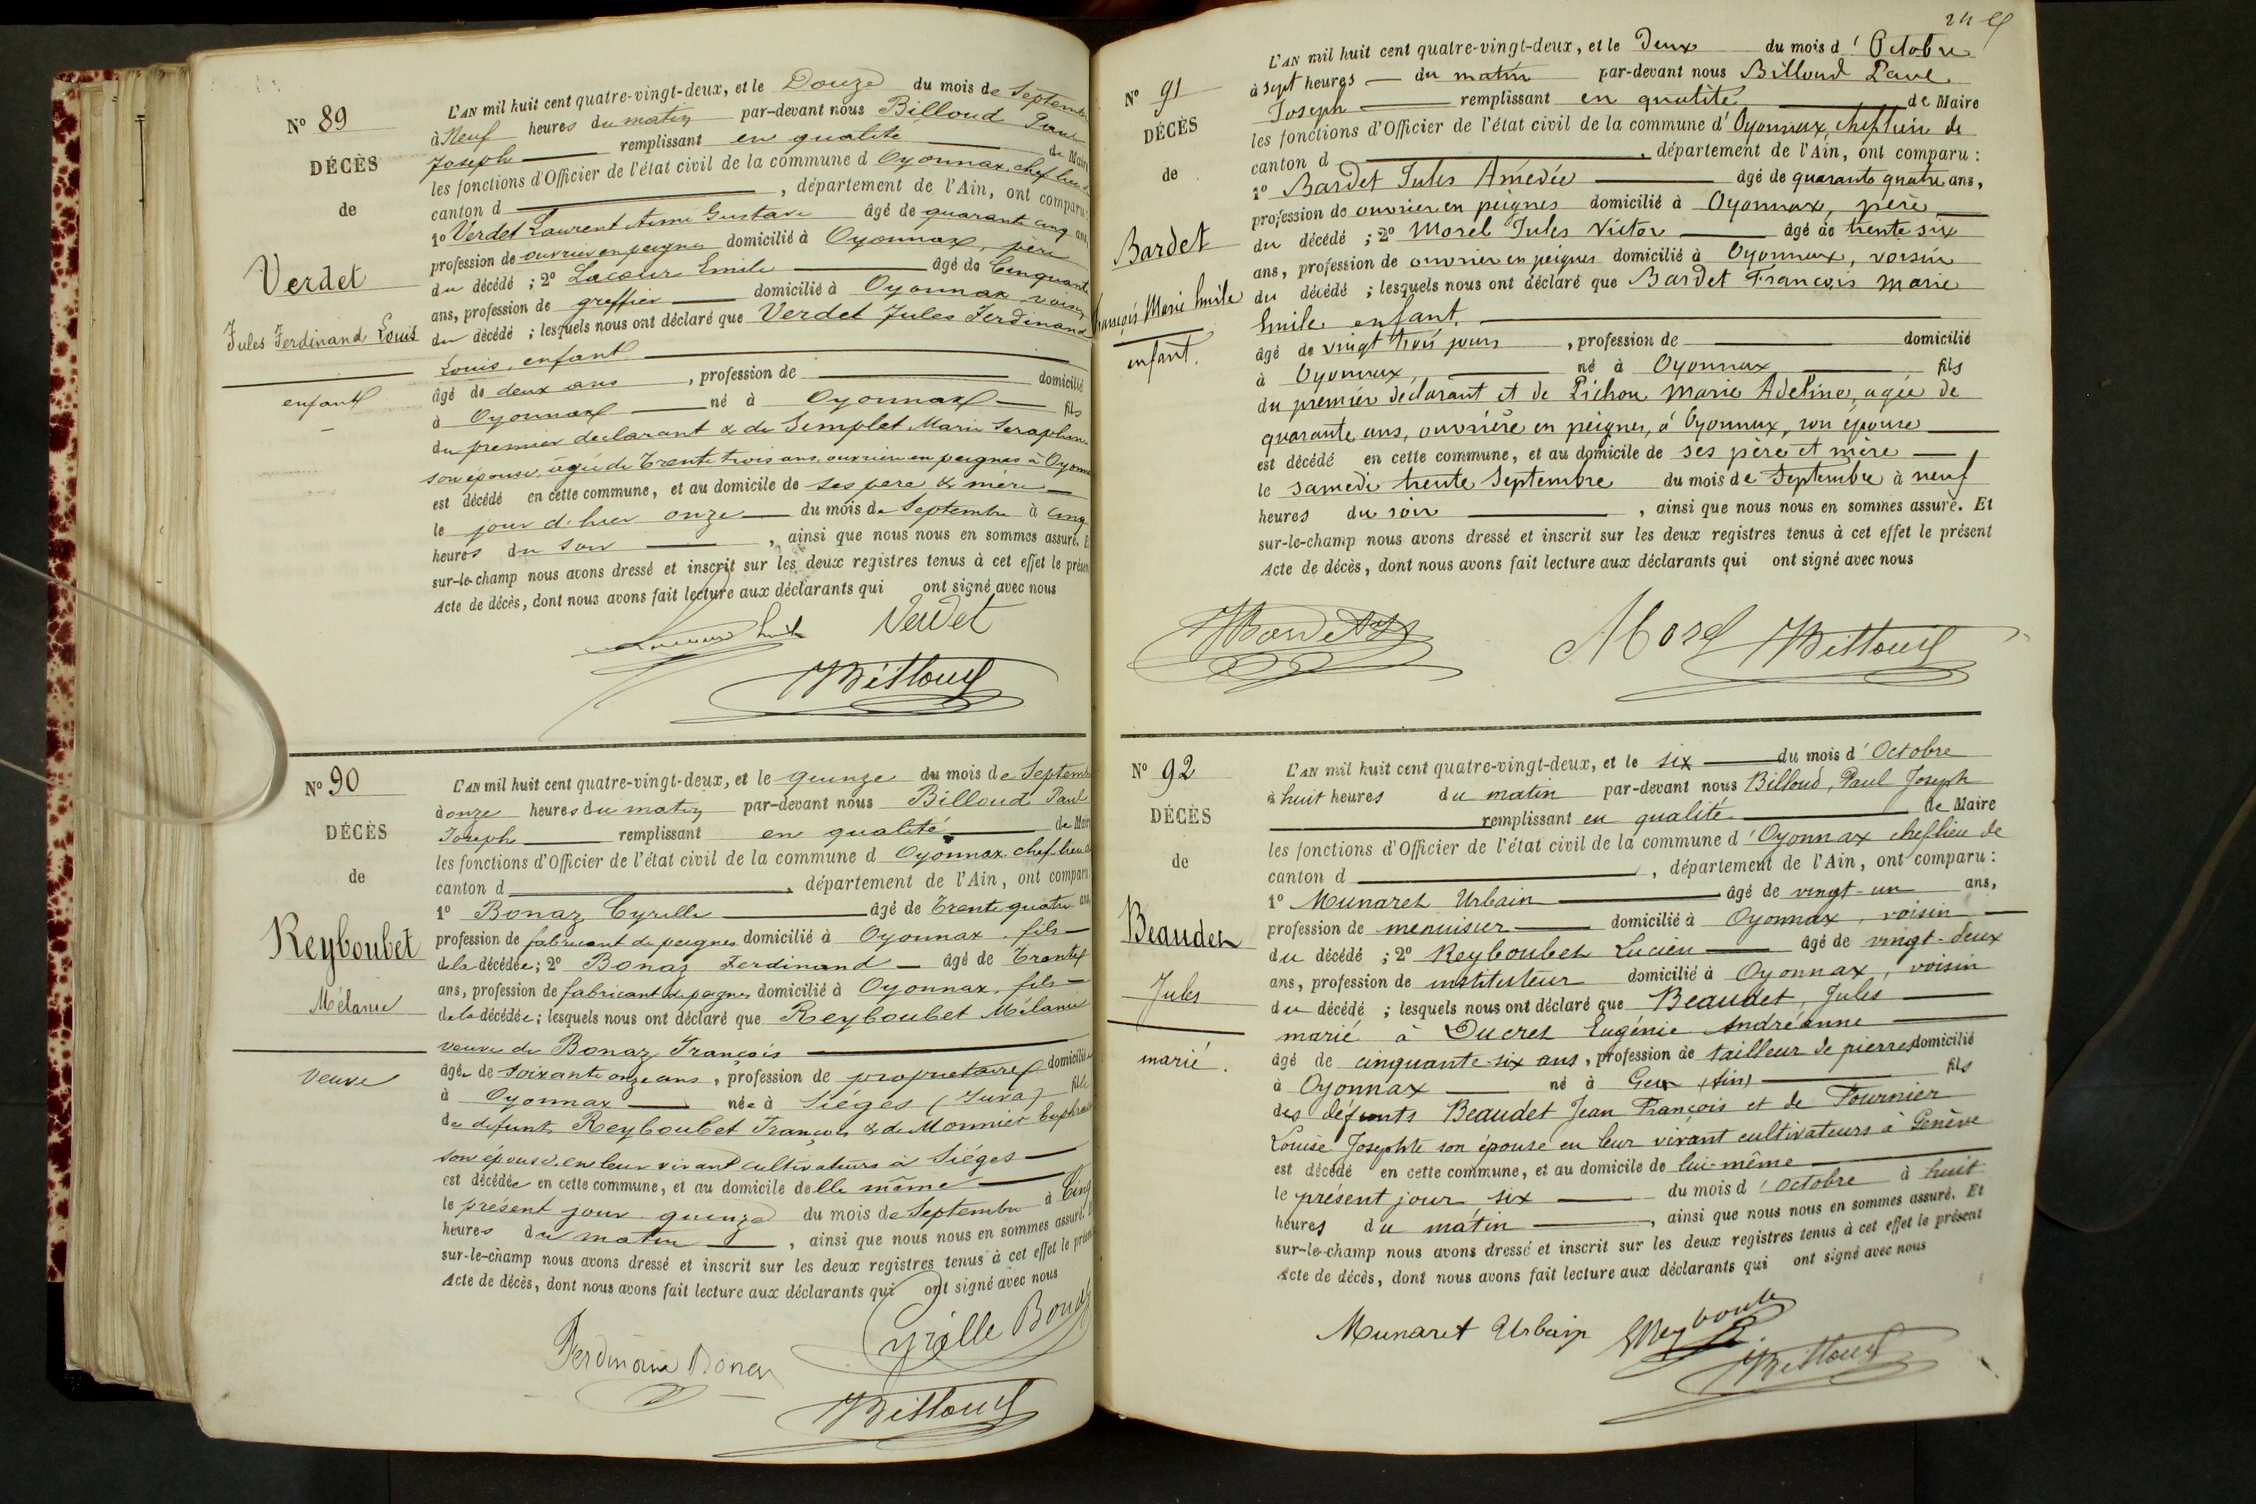 Nº 89
DÉCÈS
de
Verdet
Jules Ferdinand Louis
enfant
L'AN mil huit cent quatre-vingt-deux, et le Douze du mois de Septembre
à Neuf heures du matin par-devant nous Billoud Paul
Joseph remplissant en qualité de Maire
les fonctions d'Officier de l'état civil de la commune d Oyonnax, chef lieu de
canton d , département de l'Ain, ont comparu:
1º Verdet Laurent Aimé Gustave âgé de quarante cinq ans,
profession de ouvrier en peignes domicilié à Oyonnax, père
du décédé ; 2º Lacour Emile âgé de Cinquante
ans, profession de greffier domicilié à Oyonnax, voisin
du décédé ; lesquels nous ont déclaré que Verdet Jules Ferdinand
Louis, enfant
âgé de deux ans , profession de domicilié
à Oyonnax né à Oyonnax fils
du premier déclarant & de Semplet Marie Seraphine
son épouse, âgée de Trente trois ans, ouvrière en peignes à Oyonnax
est décédé en cette commune, et au domicile de ses père & mère
le jour d'hier onze du mois de Septembre à Cinq
heures du soir , ainsi que nous nous en sommes assuré. Et
sur-le-champ nous avons dressé et inscrit sur les deux registres tenus à cet effet le présent
Acte de décès, dont nous avons fait lecture aux déclarants qui ont signé avec nous
Verdet
Billoud
Nº 90
DÉCÈS
de
Reyboubet
Mélanie
veuve
L'AN mil huit cent quatre-vingt-deux, et le quinze du mois de Septembre
à onze heures du matin par-devant nous Billoud Paul
Joseph remplissant en qualité de Maire
les fonctions d'Officier de l'état civil de la commune d Oyonnax, chef lieu de
canton d , département de l'Ain, ont comparu
1º Bonaz Cyrille âgé de Trente quatre ans,
profession de fabricant de peignes domicilié à Oyonnax, fils
de la décédée; 2º Bonaz Ferdinand âgé de Trente
ans, profession de fabricant de peignes domicilié à Oyonnax, fils
de la décédée; lesquels nous ont déclaré que Reyboubet Mélanie
veuve de Bonaz François
âgée de soixante onze ans , profession de propriétaire domiciliée
à Oyonnax née à Siéges (Jura) fille
de défunts Reyboubet François & de Monnier
son épouse, en leur vivant cultivateurs à Siéges
est décédée en cette commune, et au domicile d'elle même
le présent jour quinze du mois de Septembre à Cinq
heures du matin , ainsi que nous nous en sommes assuré. Et
sur-le-champ nous avons dressé et inscrit sur les deux registres tenus à cet effet le présent
Acte de décès, dont nous avons fait lecture aux déclarants qui ont signé avec nous
Ferdinand Bonaz Cyrille Bonaz
Billoud
Nº 91
DÉCÈS
de
Bardet
François Marie Emile
enfant.
L'AN mil huit cent quatre-vingt-deux, et le Deux du mois d'Octobre
à sept heures du matin par-devant nous Billoud Paul
Joseph remplissant en qualité de Maire
les fonctions d'Officier de l'état civil de la commune d'Oyonnax, chef lieu de
canton d , département de l'Ain, ont comparu :
1º Bardet Jules Amédée âgé de quarante quatre ans,
profession de ouvrier en peignes domicilié à Oyonnax, père
du décédé ; 2º Morel Jules Victor âgé de trente six
ans, profession de ouvrier en peignes domicilié à Oyonnax, voisin
du décédé ; lesquels nous ont déclaré que Bardet François Marie
Emile enfant.
âgé de vingt trois jours , profession de domicilié
à Oyonnax, né à Oyonnax fils
du premier déclarant et de Pichon Marie Adeline, agée de
quarante ans, ouvrière en peignes, à Oyonnax, son épouse
est décédé en cette commune, et au domicile de ses père et mère
le samedi trente Septembre du mois de Septembre à neuf
heures du soir , ainsi que nous nous en sommes assuré. Et
sur-le-champ nous avons dressé et inscrit sur les deux registres tenus à cet effet le présent
Acte de décès, dont nous avons fait lecture aux déclarants qui ont signé avec nous
Bardet Morel Billoud
Nº 92
DÉCÈS
de
Beaudet
Jules
marié.
L'AN mil huit cent quatre-vingt-deux, et le six du mois d'Octobre
à huit heures du matin par-devant nous Billoud, Paul Joseph
remplissant en qualité de Maire
les fonctions d'Officier de l'état civil de la commune d'Oyonnax chef lieu de
canton d , département de l'Ain, ont comparu :
1º Munaret Urbain âgé de vingt-un ans,
profession de menuisier domicilié à Oyonnax, voisin
du décédé ; 2º Reyboubet Lucien âgé de vingt-deux
ans, profession de instituteur domicilié à Oyonnax, voisin
du décédé ; lesquels nous ont déclaré que Beaudet, Jules
marié à Ducret Eugénie Andréanne
âgé de cinquante-six ans, profession de tailleur de pierres domicilié
à Oyonnax né à Gex (Ain) fils
des défunts Beaudet Jean François et de Fournier
Louise Josephte son épouse en leur vivant cultivateurs à Genève
est décédé en cette commune, et au domicile de lui-même
le présent jour six du mois d'octobre à huit
heures du matin , ainsi que nous nous en sommes assuré. Et
sur-le-champ nous avons dressé et inscrit sur les deux registres tenus à cet effet le présent
Acte de décès, dont nous avons fait lecture aux déclarants qui ont signé avec nous
Munaret Urbain
Billoud